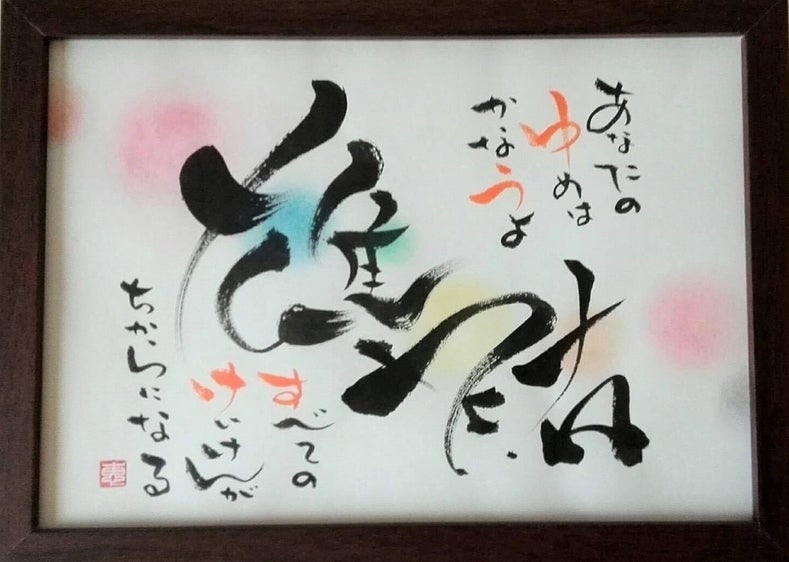 あなたの
ゆめは
かなうよ
すべての
けいけんが
ちからになる